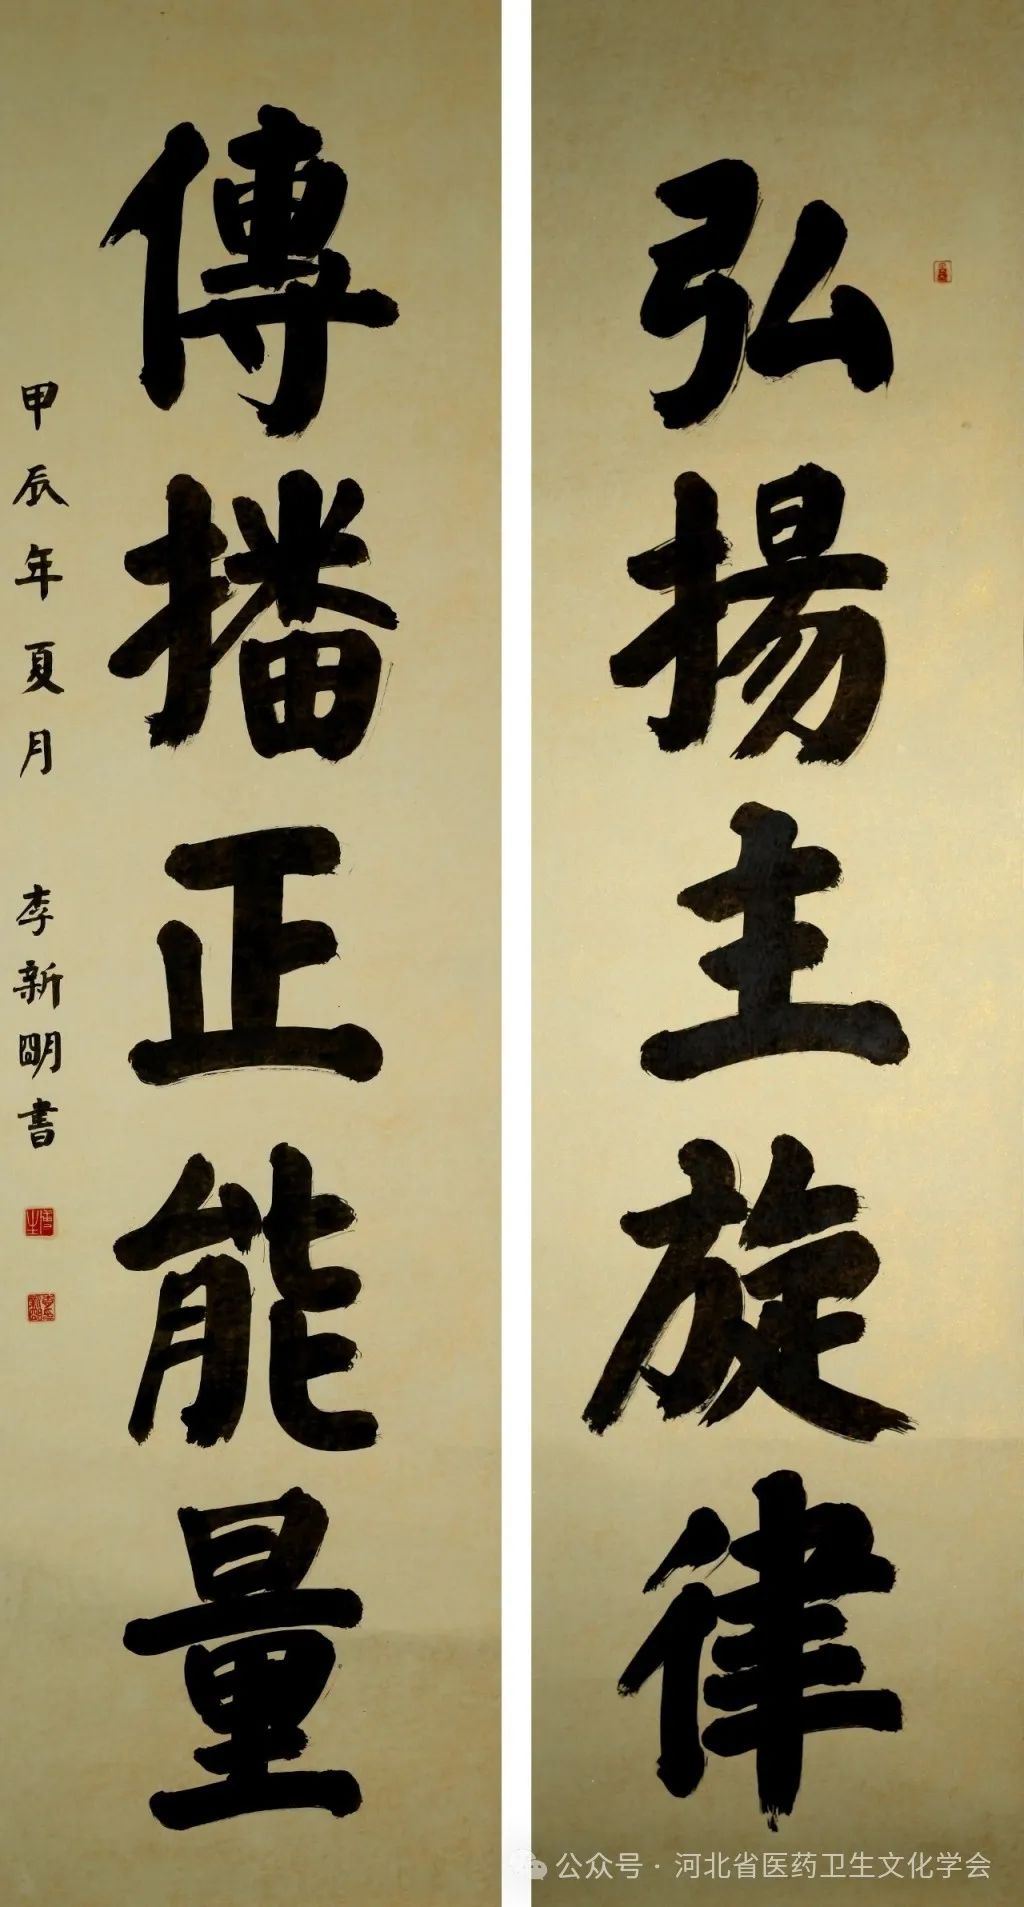 弘揚主旋律
傳播正能量
甲辰年夏月 李新明書
公众号·河北省医药卫生文化学会